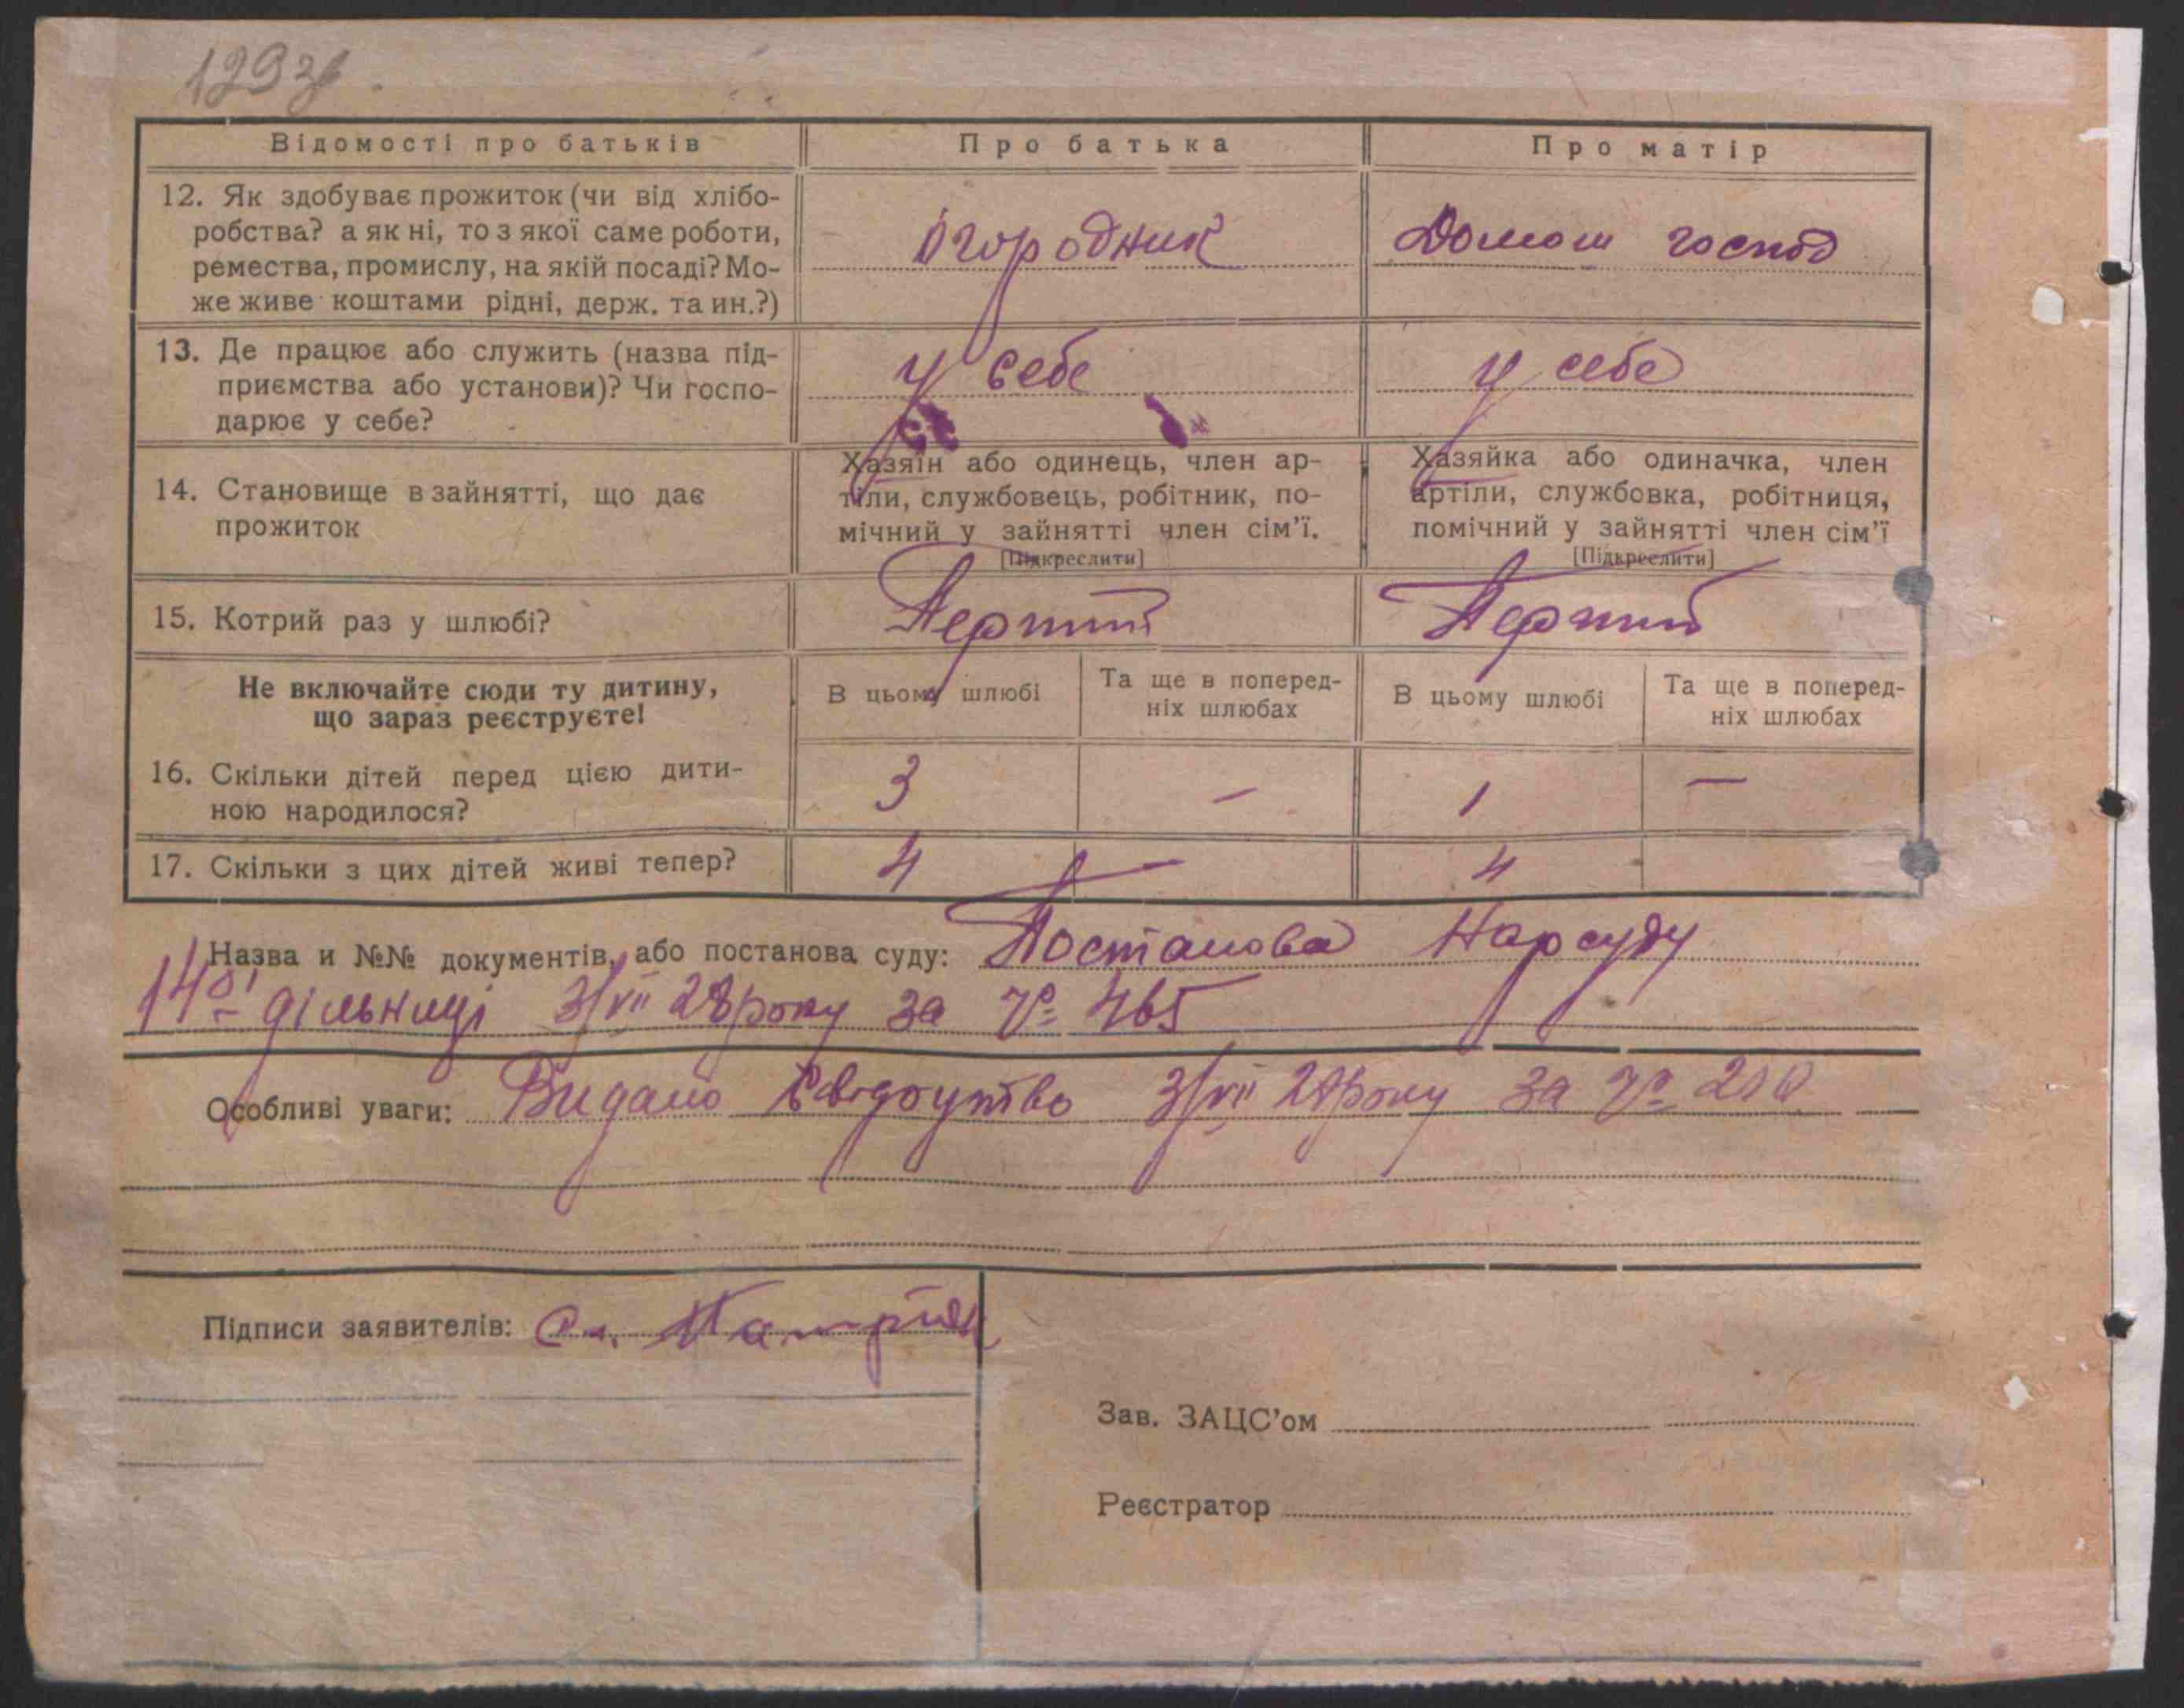 129зв.
Відомості про батьків
Про батька
Про матір
12. Як здобуває прожиток (чи від хлібо-
робства? а як ні, то з якої саме роботи,
ремества, промислу, на якій посаді? Мо-
же живе коштами рідні, держ. та ин.?)
Огородник
Домаш господ
13. Де працює або служить (назва під-
приємства або установи)? Чи госпо-
дарює у себе?
у себе
у себе
14. Становище в зайнятті, що дає
прожиток
Хазяїн або одинець, член ар-
тіли, службовець, робітник, по-
мічний у зайнятті член сім'ї.
[Підкреслити]
Хазяйка або одиначка, член
артіли, службовка, робітниця,
помічний у зайнятті член сім'ї
[Підкреслити]
15. Котрий раз у шлюбі?
Перший
Перший
Не включайте сюди ту дитину,
що зараз реєструєте!
В цьому шлюбі
Та ще в поперед-
ніх шлюбах
В цьому шлюбі
Та ще в поперед-
ніх шлюбах
16. Скільки дітей перед цією дити-
ною народилося?
3
–
1
–
17. Скільки з цих дітей живі тепер?
4
–
4
Назва и №№ документів, або постанова суду: Постанова Нарсуду
14ої дільниці 3/VII 28 року за № 465
Особливі уваги: Видано Свідоцтво 3/VII 28 року за №
Підписи заявителів:
Зав. ЗАЦС'ом
Реєстратор